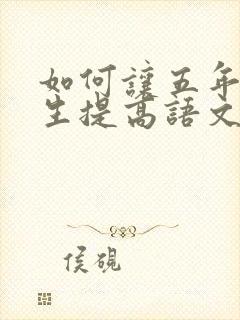 如何讓五年
生提高語文
侯硯